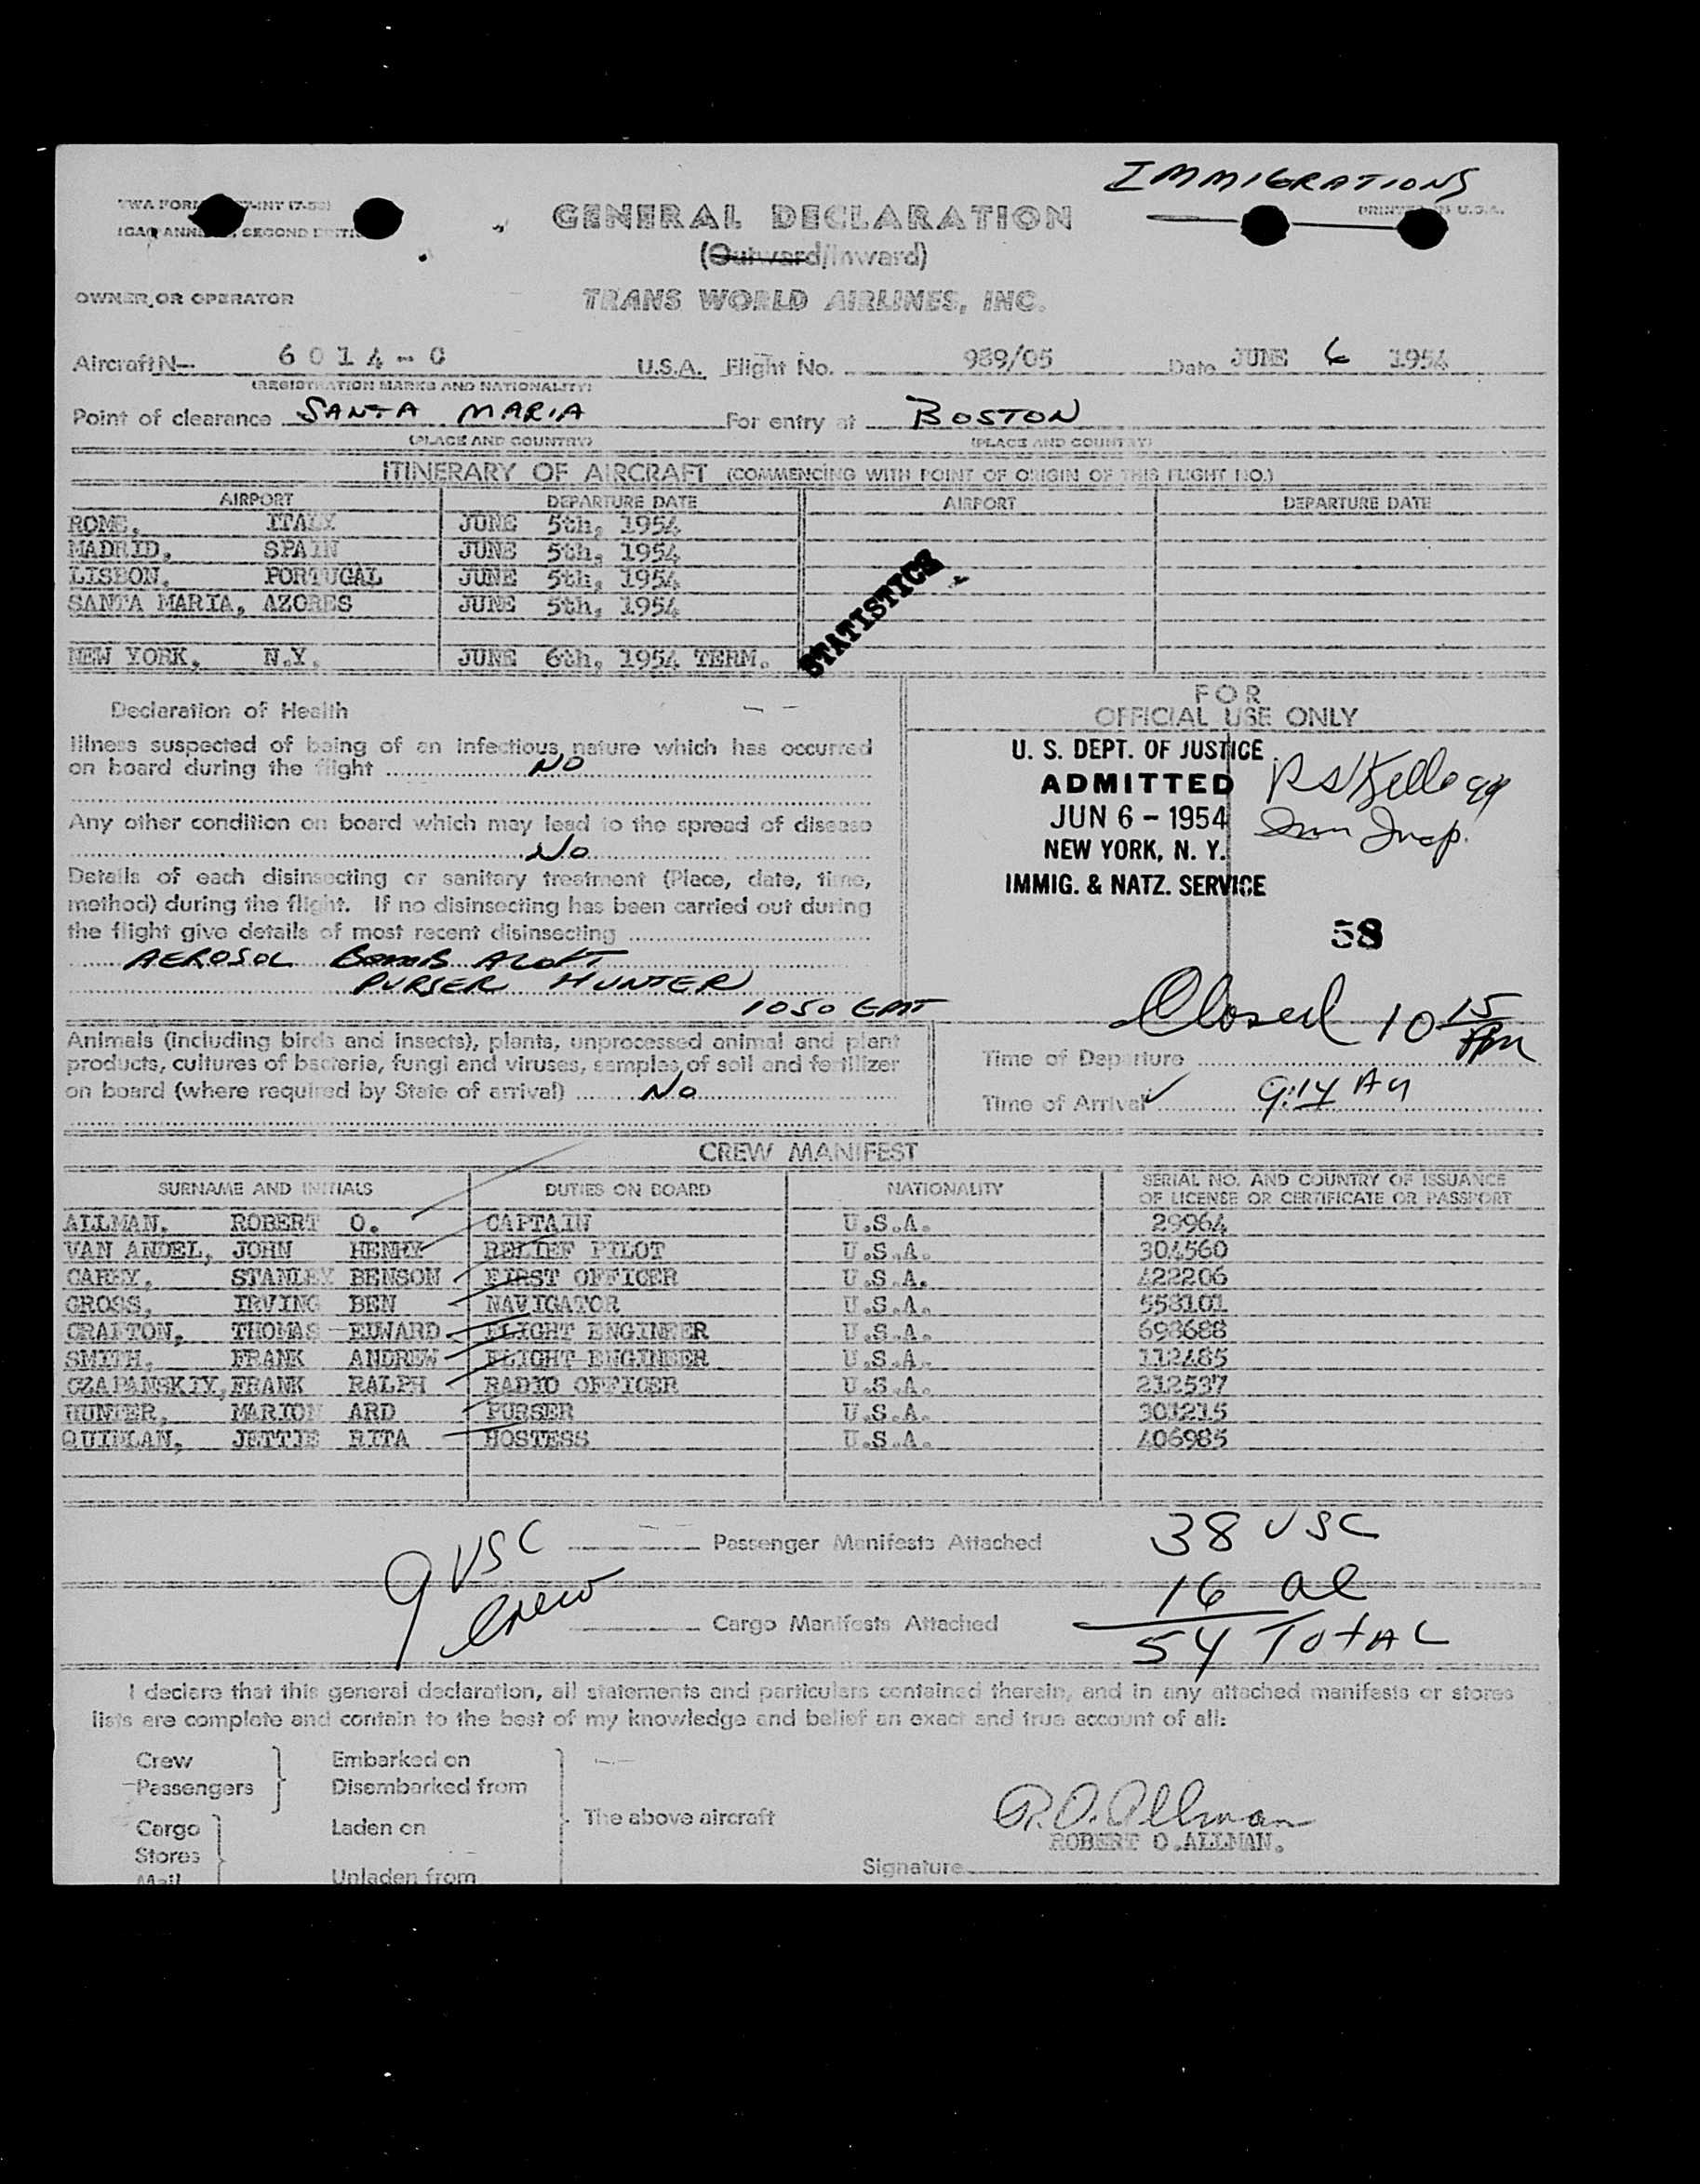 IMMIGRATIONS
PRINTED IN U.S.A.
GENERAL DECLARATION
(Outward/Inward)
OWNER OR OPERATOR TRANS WORLD AIRLINES, INC.
Aircraft N- 6014-C U.S.A. Flight No. 989/05 Date JUNE 6 1954
(REGISTRATION MARKS AND NATIONALITY)
Point of clearance SANTA MARIA For entry at BOSTON
(PLACE AND COUNTRY) (PLACE AND COUNTRY)
ITINERARY OF AIRCRAFT (COMMENCING WITH POINT OF ORIGIN OF THIS FLIGHT NO.)
AIRPORT DEPARTURE DATE AIRPORT DEPARTURE DATE
ROME, ITALY JUNE 5th, 1954
MADRID, SPAIN JUNE 5th, 1954
LISBON, PORTUGAL JUNE 5th, 1954
SANTA MARIA, AZORES JUNE 5th, 1954
STATISTICS
NEW YORK, N.Y. JUNE 6th, 1954 TERM.
Declaration of Health
Illness suspected of being of an infectious nature which has occurred
on board during the flight NO
Any other condition on board which may lead to the spread of disease
No
Details of each disinsecting or sanitary treatment (Place, date, time,
method) during the flight. If no disinsecting has been carried out during
the flight give details of most recent disinsecting
AEROSOL BOMB ALOFT
PURSER HUNTER
1050 GMT
FOR
OFFICIAL USE ONLY
U. S. DEPT. OF JUSTICE
ADMITTED
JUN 6 - 1954
NEW YORK, N. Y.
IMMIG. & NATZ. SERVICE
R S Kellogg
Imm Insp.
58
Closed 10 15
Animals (including birds and insects), plants, unprocessed animal and plant
products, cultures of bacteria, fungi and viruses, samples of soil and fertilizer
on board (where required by State of arrival) No
Time of Departure
Time of Arrival 9:14 AM
CREW MANIFEST
SURNAME AND INITIALS DUTIES ON BOARD NATIONALITY SERIAL NO. AND COUNTRY OF ISSUANCE
OF LICENSE OR CERTIFICATE OR PASSPORT
ALLMAN, ROBERT O. CAPTAIN U.S.A. 29964
VAN ANDEL, JOHN HENRY RELIEF PILOT U.S.A. 304560
CAREY, STANLEY BENSON FIRST OFFICER U.S.A. 422206
GROSS, IRVING BEN NAVIGATOR U.S.A. 558101
CRAFTON, THOMAS EDWARD FLIGHT ENGINEER U.S.A. 698688
SMITH, FRANK ANDREW FLIGHT ENGINEER U.S.A. 112485
CZAPANSKIY, FRANK RALPH RADIO OFFICER U.S.A. 212537
HUNTER, MARION ARD PURSER U.S.A. 301215
QUINLAN, JETTIE RITA HOSTESS U.S.A. 406985
9 USC
Crew
Passenger Manifests Attached 38 USC
16 al
Cargo Manifests Attached
54 TOTAL
I declare that this general declaration, all statements and particulars contained therein, and in any attached manifests or stores
lists are complete and contain to the best of my knowledge and belief an exact and true account of all:
Crew Embarked on
Passengers Disembarked from
Cargo Laden on The above aircraft
Stores
Mail Unladen from
R.O. Allman
ROBERT O.ALLMAN.
Signature